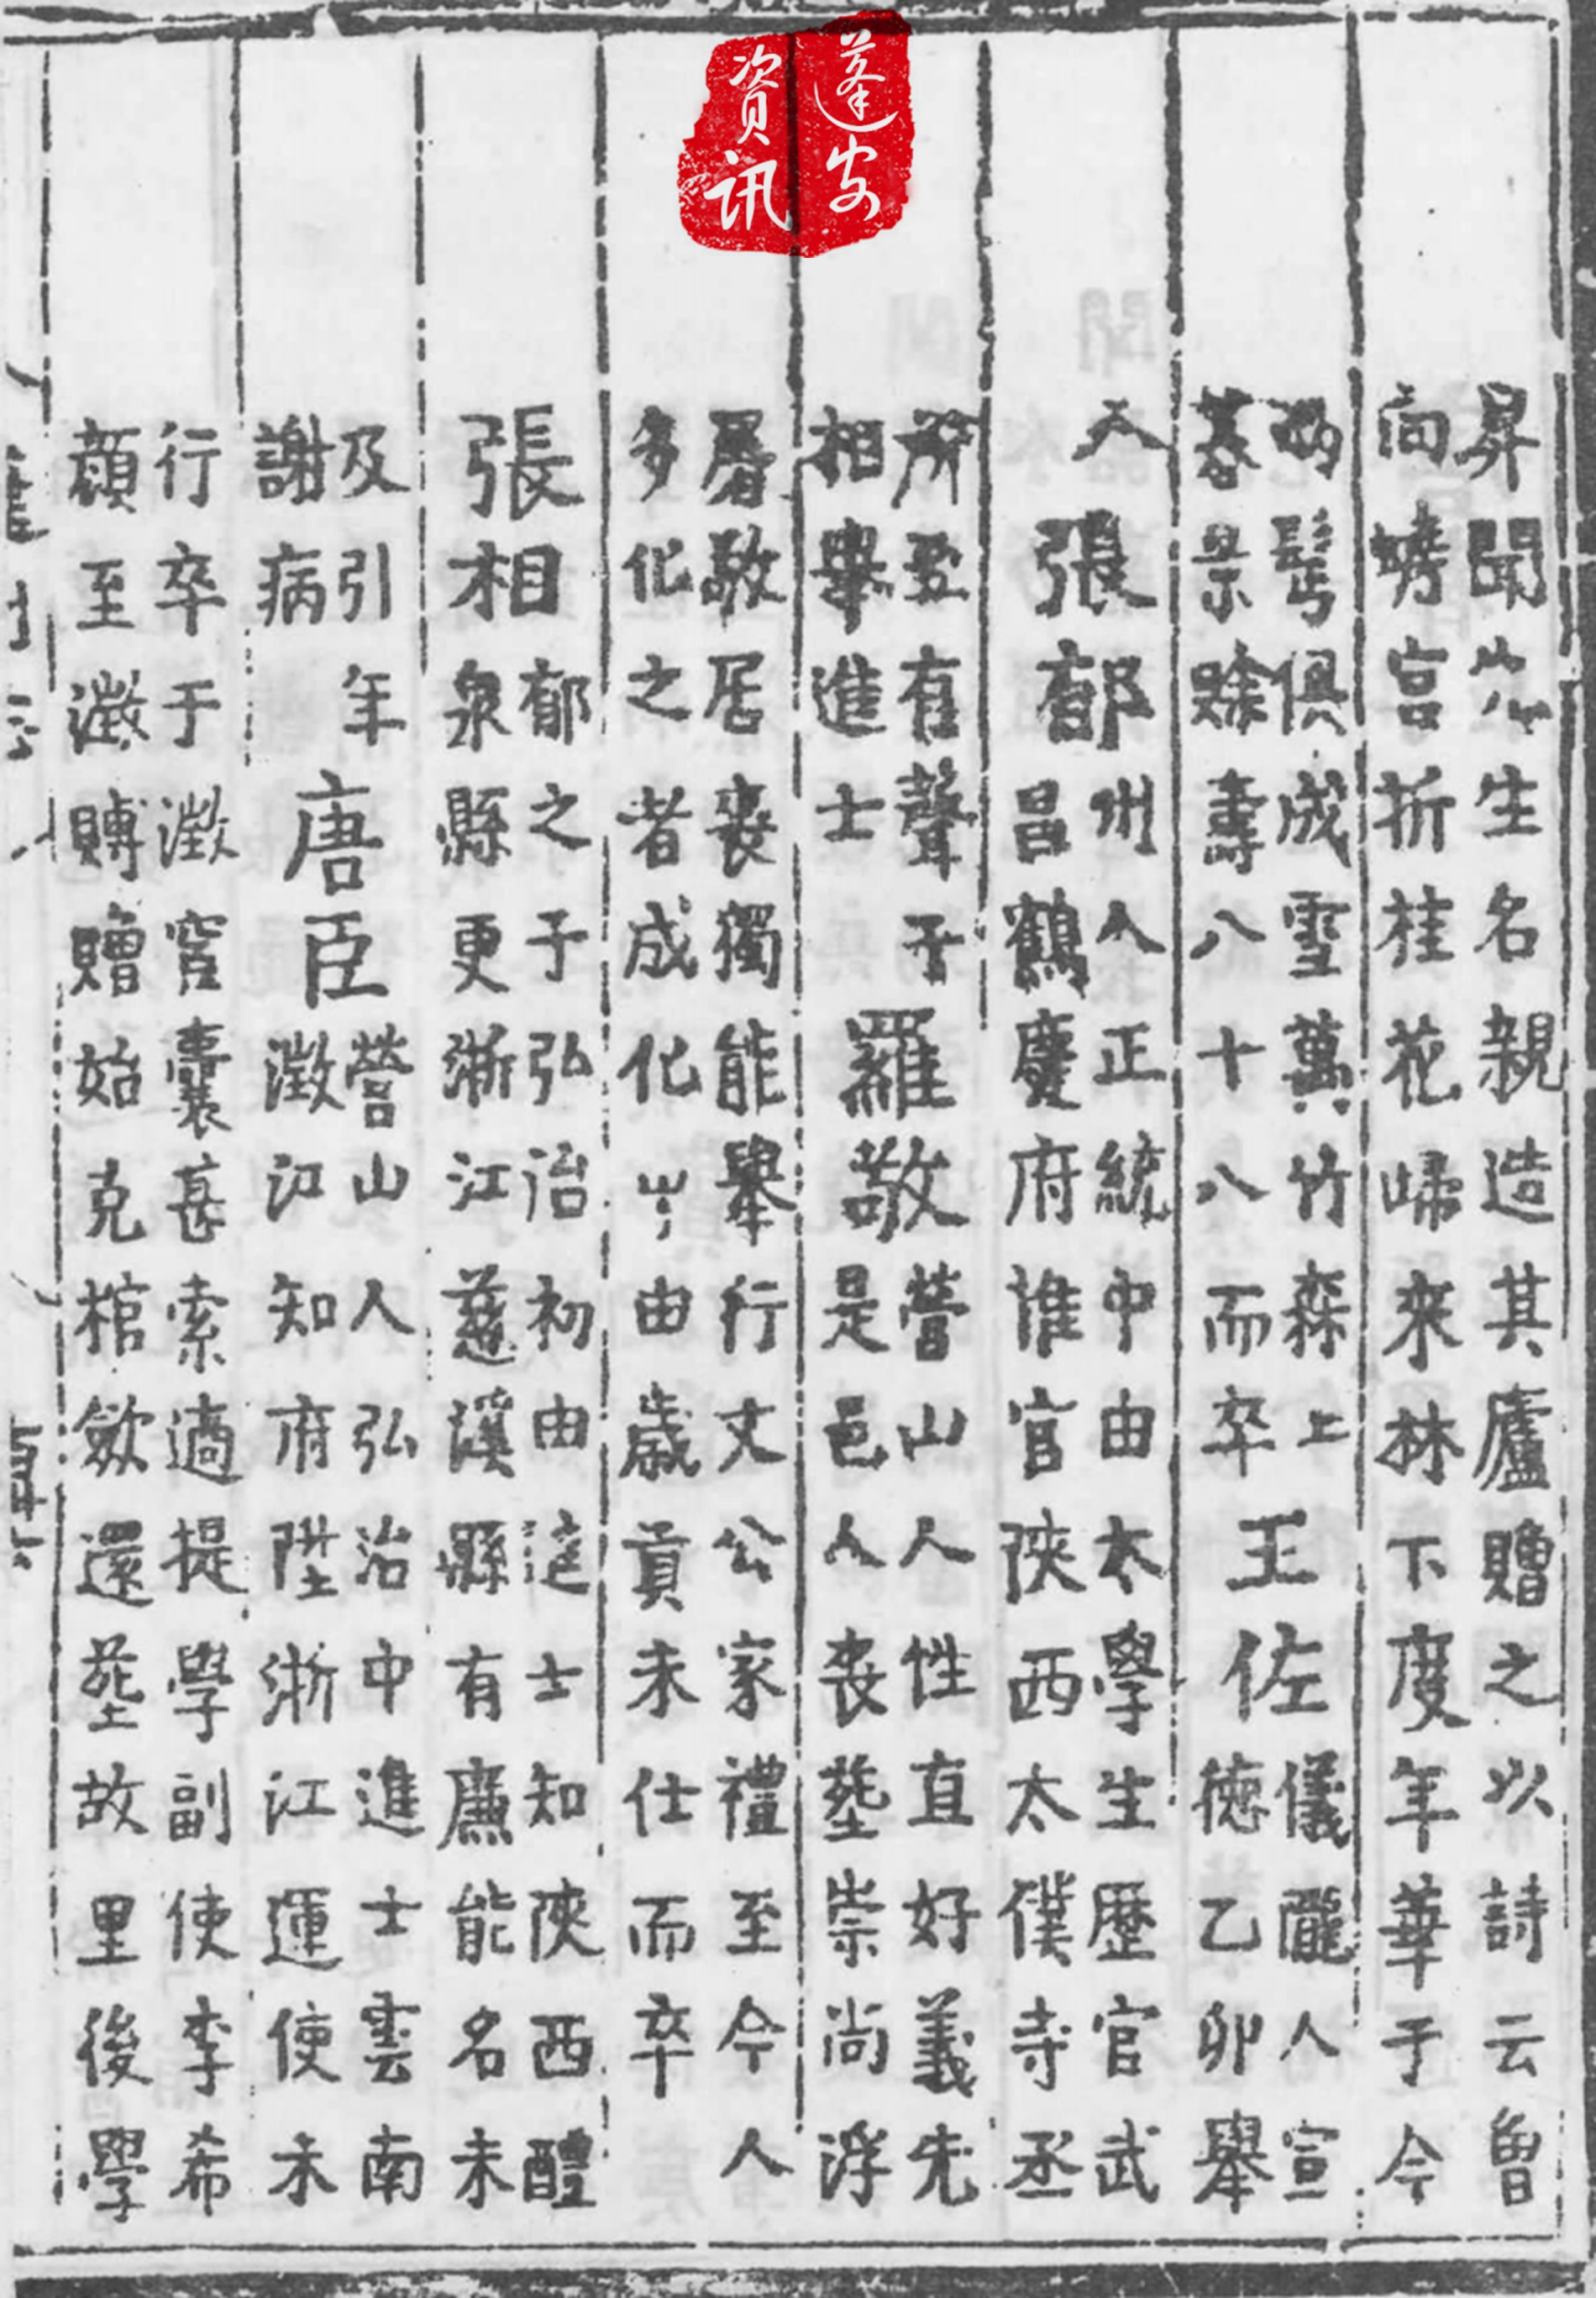 蓬安
资讯
昇聞先生名親造其廬贈之以詩云曾
向蟾宮折桂花歸來林下度年華于今
兩髩俱成雪萬竹森上
暮景賒壽八十八而卒
王佐
儀隴人宣
德乙卯舉
人
張郁
州人正統中由太學生歷官武
昌鶴慶府推官陝西太僕寺丞
所至有聲子
相舉進士
羅敬
營山人性直好義先
是邑人喪塟崇尚浮
屠敬居喪獨能舉行文公家禮至今人
多化之者成化中由歲貢未仕而卒
張相
郁之子弘治初由進士知陝西醴
泉縣更浙江慈溪縣有廉能名未
及引年
謝病
唐臣
營山人弘治中進士雲南
澂江知府陞浙江運使未
行卒于澂宦囊甚索適提學副使李希
顏至澂賻贈始克棺歛還塟故里後學